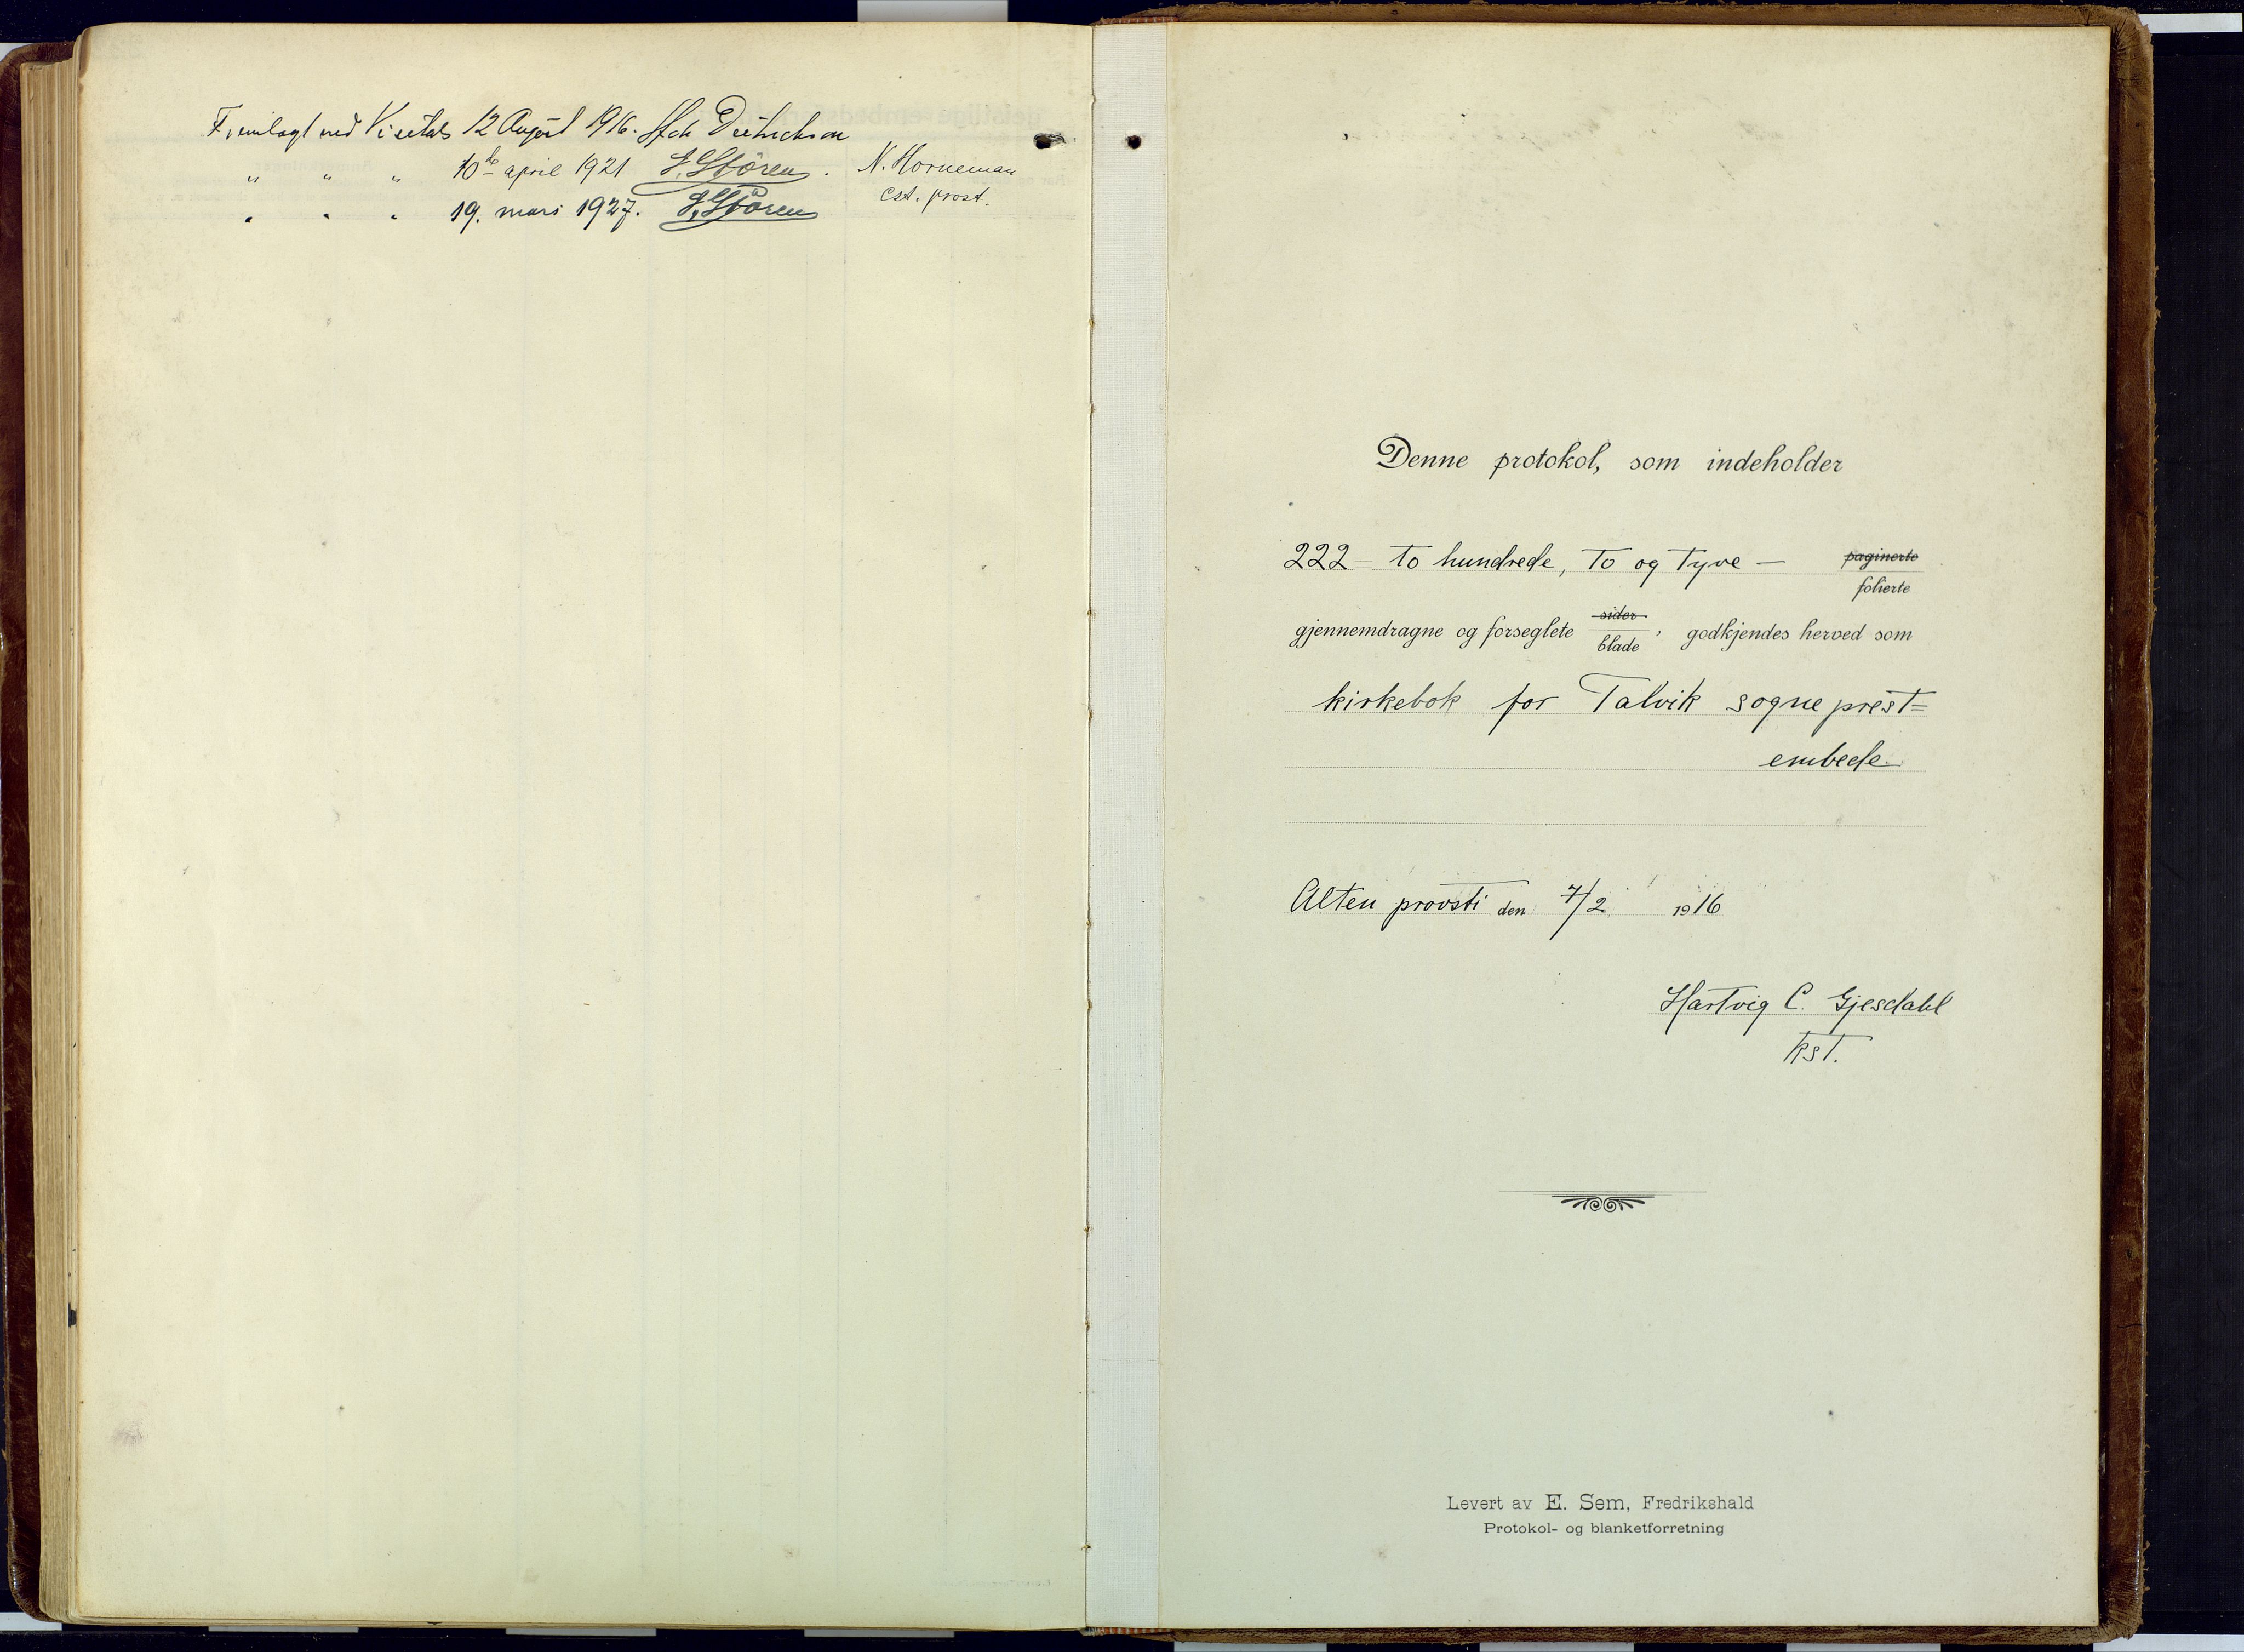 Fremlagt ved Visitats 12 August 1916. Dietrichson
" " " 10de april 1921 J. Støren. N. Horneman
cst. prost.
" " " 19. mars 1927. J. Støren
Denne protokol, som indeholder
222 - to hundrede, to og tyve - paginerte
folierte
gjennemdragne og forseglete sider
blade, godkjendes herved som
kirkebok for Talvik sogneprest=
embede
Alten provsti den 7/2 1916
Hartvig C. Gjesdahl
kst.
Levert av E. Sem, Fredrikshald
Protokol- og blanketforretning